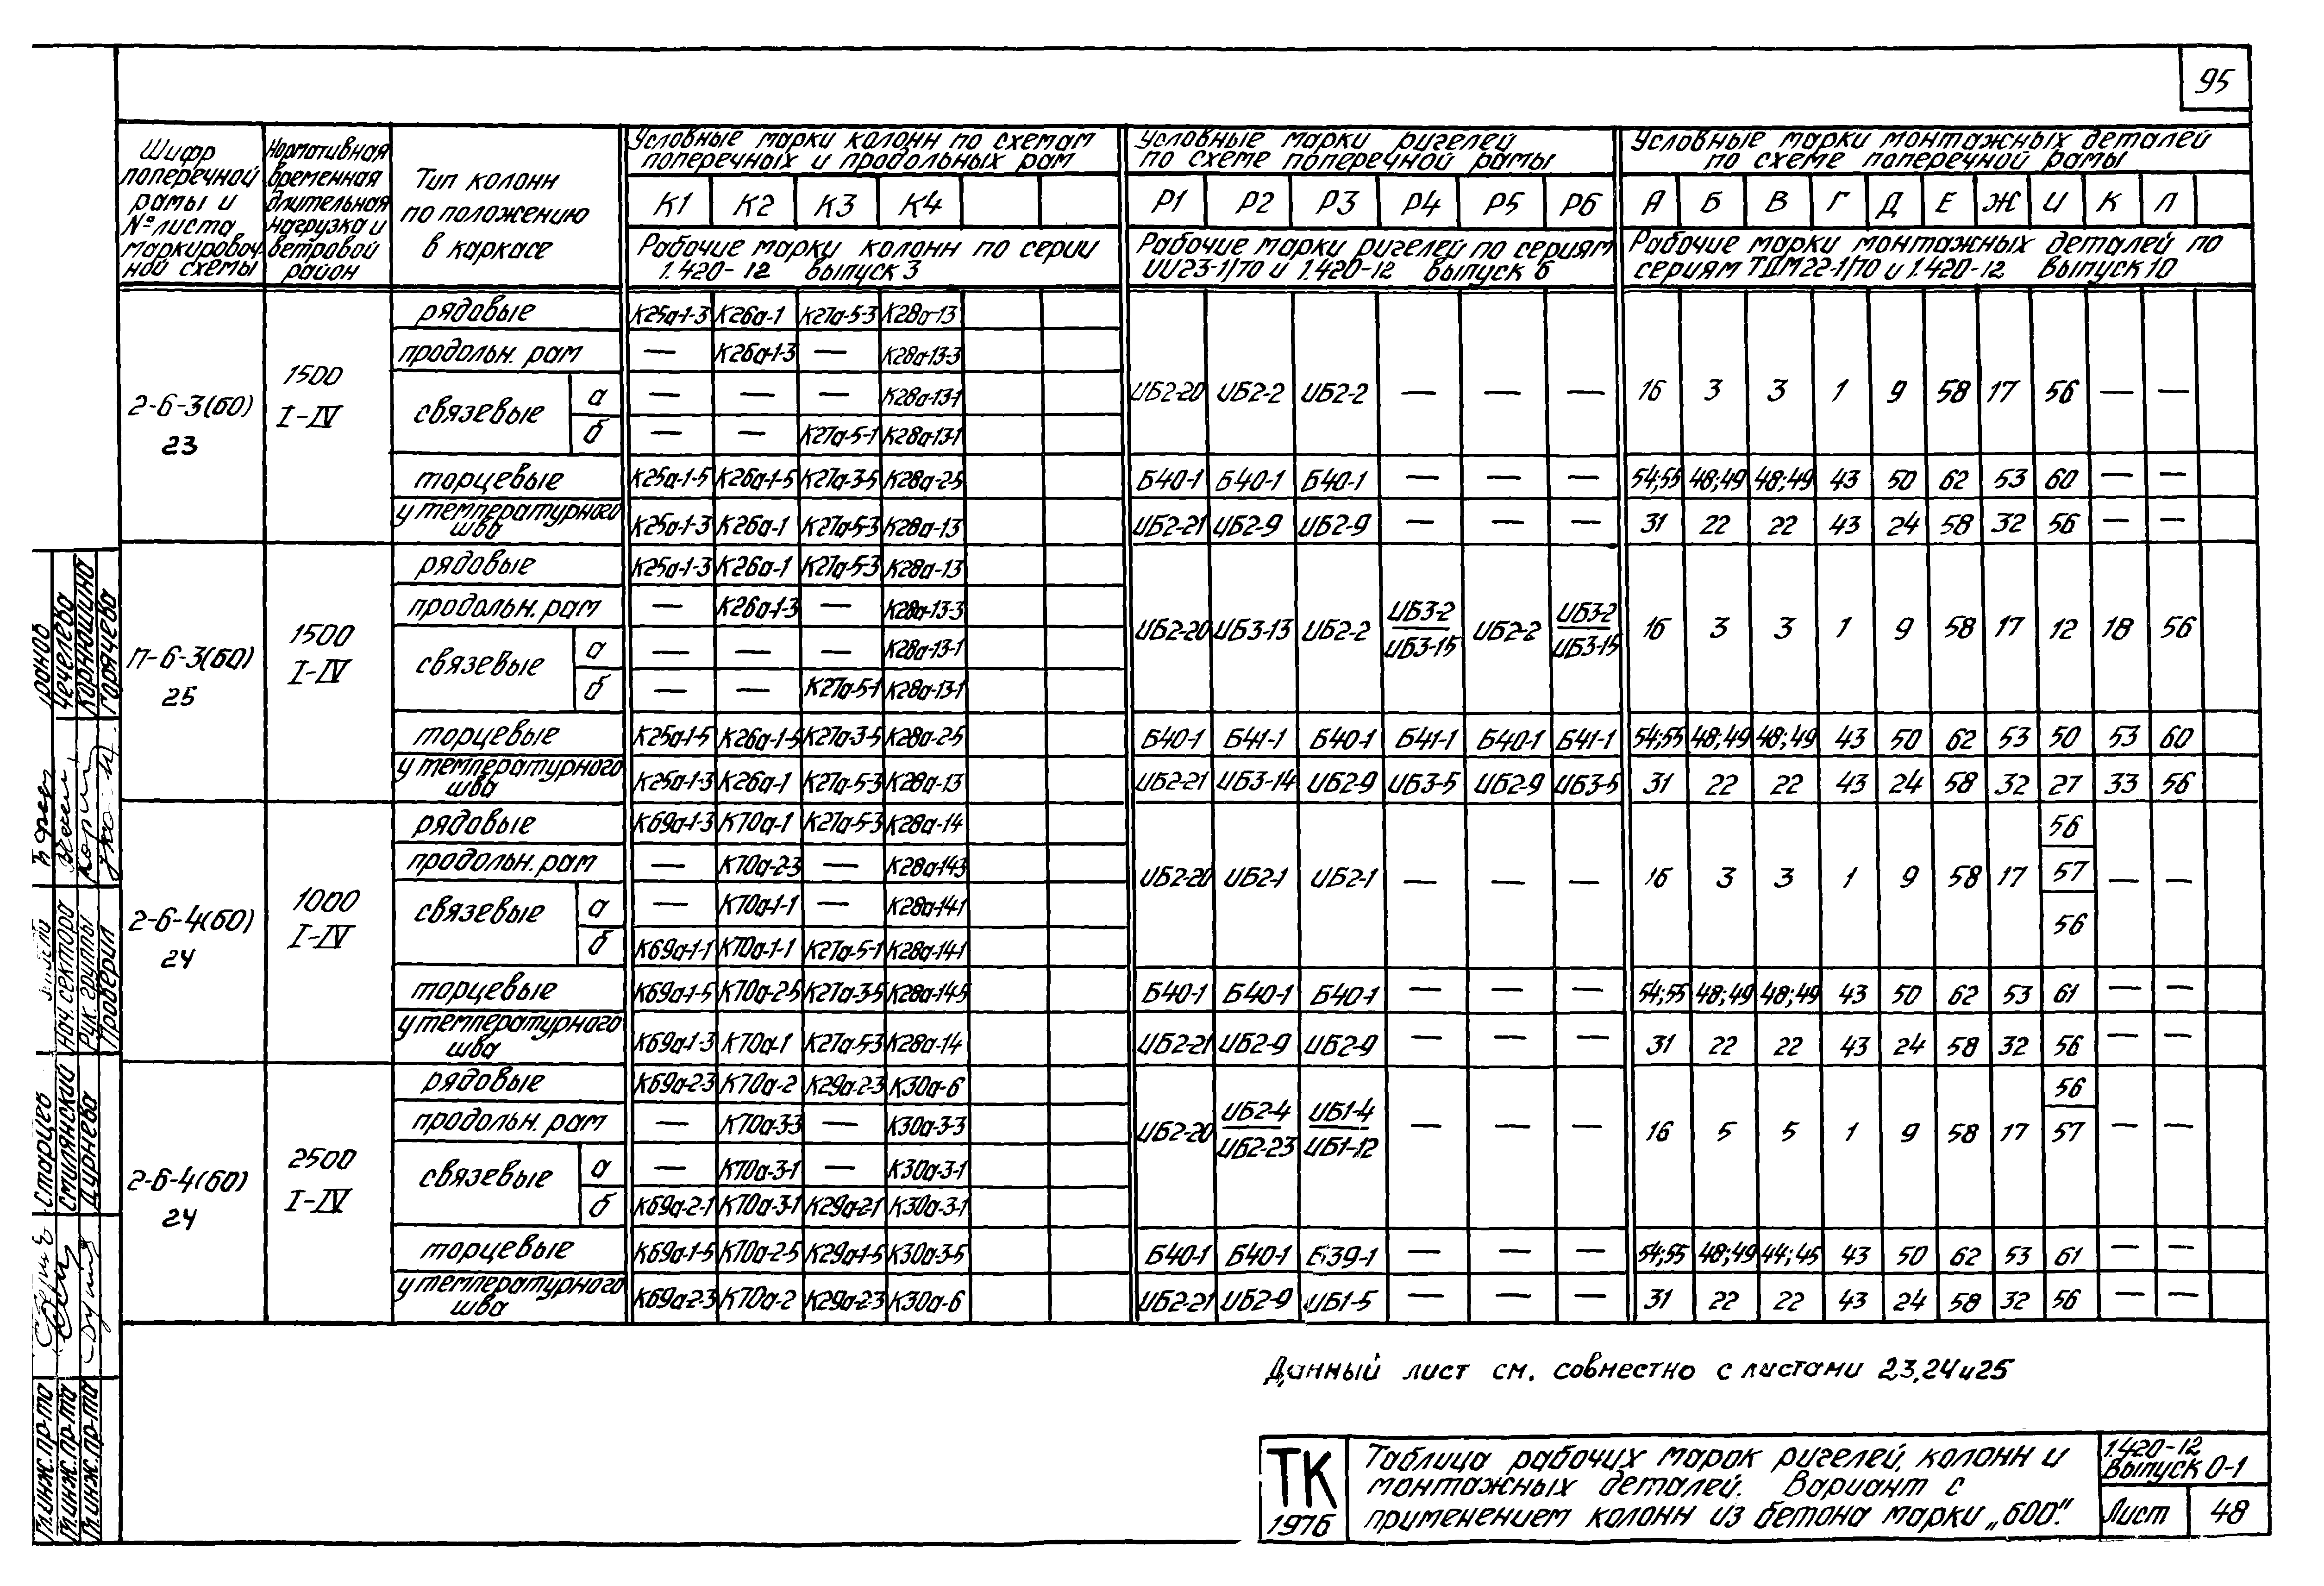 95
Шифр поперечной рамы и № листа маркировочной схемы
Нормативная временная длительная нагрузка и ветровой район
Тип колонн по положению в каркасе
Условные марки колонн по схемам поперечных и продольных рам
Условные марки ригелей по схеме поперечной рамы
Условные марки монтажных деталей по схеме поперечной рамы
К1 К2 К3 К4
Р1 Р2 Р3 Р4 Р5 Р6
А Б В Г Д Е Ж И К Л
Рабочие марки колонн по серии 1.420-12 выпуск 3
Рабочие марки ригелей по сериям ИИ23-1/70 и 1.420-12 выпуск 6
Рабочие марки монтажных деталей по сериям ТДМ22-1/70 и 1.420-12 выпуск 10
2-6-3(60) 23
1500 I-IV
рядовые К25а-1-3 К26а-1 К27а-5-3 К28а-13
продольн. рам — К26а-1-3 — К28а-13-3
связевые а — — — К28а-13-1
б — — К27а-5-1 К28а-13-1
ИБ2-20 ИБ2-2 ИБ2-2 — — — 16 3 3 1 9 58 17 56 — —
торцевые К25а-1-5 К26а-1-5 К27а-3-5 К28а-2-5 Б40-1 Б40-1 Б40-1 — — — 54;55 48;49 48;49 43 50 62 53 60 — —
у температурного шва К25а-1-3 К26а-1 К27а-5-3 К28а-13 ИБ2-21 ИБ2-9 ИБ2-9 — — — 31 22 22 43 24 58 32 56 — —
П-6-3(60) 25
1500 I-IV
рядовые К25а-1-3 К26а-1 К27а-5-3 К28а-13
продольн. рам — К26а-1-3 — К28а-13-3
связевые а — — — К28а-13-1
б — — К27а-5-1 К28а-13-1
ИБ2-20 ИБ3-13 ИБ2-2 ИБ3-2 ИБ3-15 ИБ2-2 ИБ3-2 ИБ3-15 16 3 3 1 9 58 17 12 18 56
торцевые К25а-1-5 К26а-1-5 К27а-3-5 К28а-2-5 Б40-1 Б41-1 Б40-1 Б41-1 Б40-1 Б41-1 54;55 48;49 48;49 43 50 62 53 50 53 60
у температурного шва К25а-1-3 К26а-1 К27а-5-3 К28а-13 ИБ2-21 ИБ3-14 ИБ2-9 ИБ3-5 ИБ2-9 ИБ3-5 31 22 22 43 24 58 32 27 33 56
2-6-4(60) 24
1000 I-IV
рядовые К69а-1-3 К70а-1 К27а-5-3 К28а-14
продольн. рам — К70а-2-3 — К28а-14-3
связевые а — К70а-1-1 — К28а-14-1
б К69а-1-1 К70а-1-1 К27а-5-1 К28а-14-1
ИБ2-20 ИБ2-1 ИБ2-1 — — — 16 3 3 1 9 58 17 56 57 56 — —
торцевые К69а-1-5 К70а-2-5 К27а-3-5 К28а-14-5 Б40-1 Б40-1 Б40-1 — — — 54;55 48;49 48;49 43 50 62 53 61 — —
у температурного шва К69а-1-3 К70а-1 К27а-5-3 К28а-14 ИБ2-21 ИБ2-9 ИБ2-9 — — — 31 22 22 43 24 58 32 56 — —
2-6-4(60) 24
2500 I-IV
рядовые К69а-2-3 К70а-2 К29а-2-3 К30а-6
продольн. рам — К70а-3-3 — К30а-3-3
связевые а — К70а-3-1 — К30а-3-1
б К69а-2-1 К70а-3-1 К29а-2-1 К30а-3-1
ИБ2-20 ИБ2-4 ИБ2-23 ИБ1-4 ИБ1-12 — — — 16 5 5 1 9 58 17 56 57 — —
торцевые К69а-1-5 К70а-2-5 К29а-1-5 К30а-3-5 Б40-1 Б40-1 Б39-1 — — — 54;55 48;49 44;45 43 50 62 53 61 — —
у температурного шва К69а-2-3 К70а-2 К29а-2-3 К30а-6 ИБ2-21 ИБ2-9 ИБ1-5 — — — 31 22 22 43 24 58 32 56 — —
Данный лист см. совместно с листами 23,24 и 25
ТК
1976
Таблица рабочих марок ригелей, колонн и
монтажных деталей. Вариант с
применением колонн из бетона марки „600".
1.420-12
Выпуск 0-1
Лист 48
Гл.инж.пр-та Старцев
Гл.инж.пр-та Смилянский
Гл.инж.пр-та Дурнева
Нач.сектора Чечелева
Рук. группы Корнюшина
Проверил Горячева